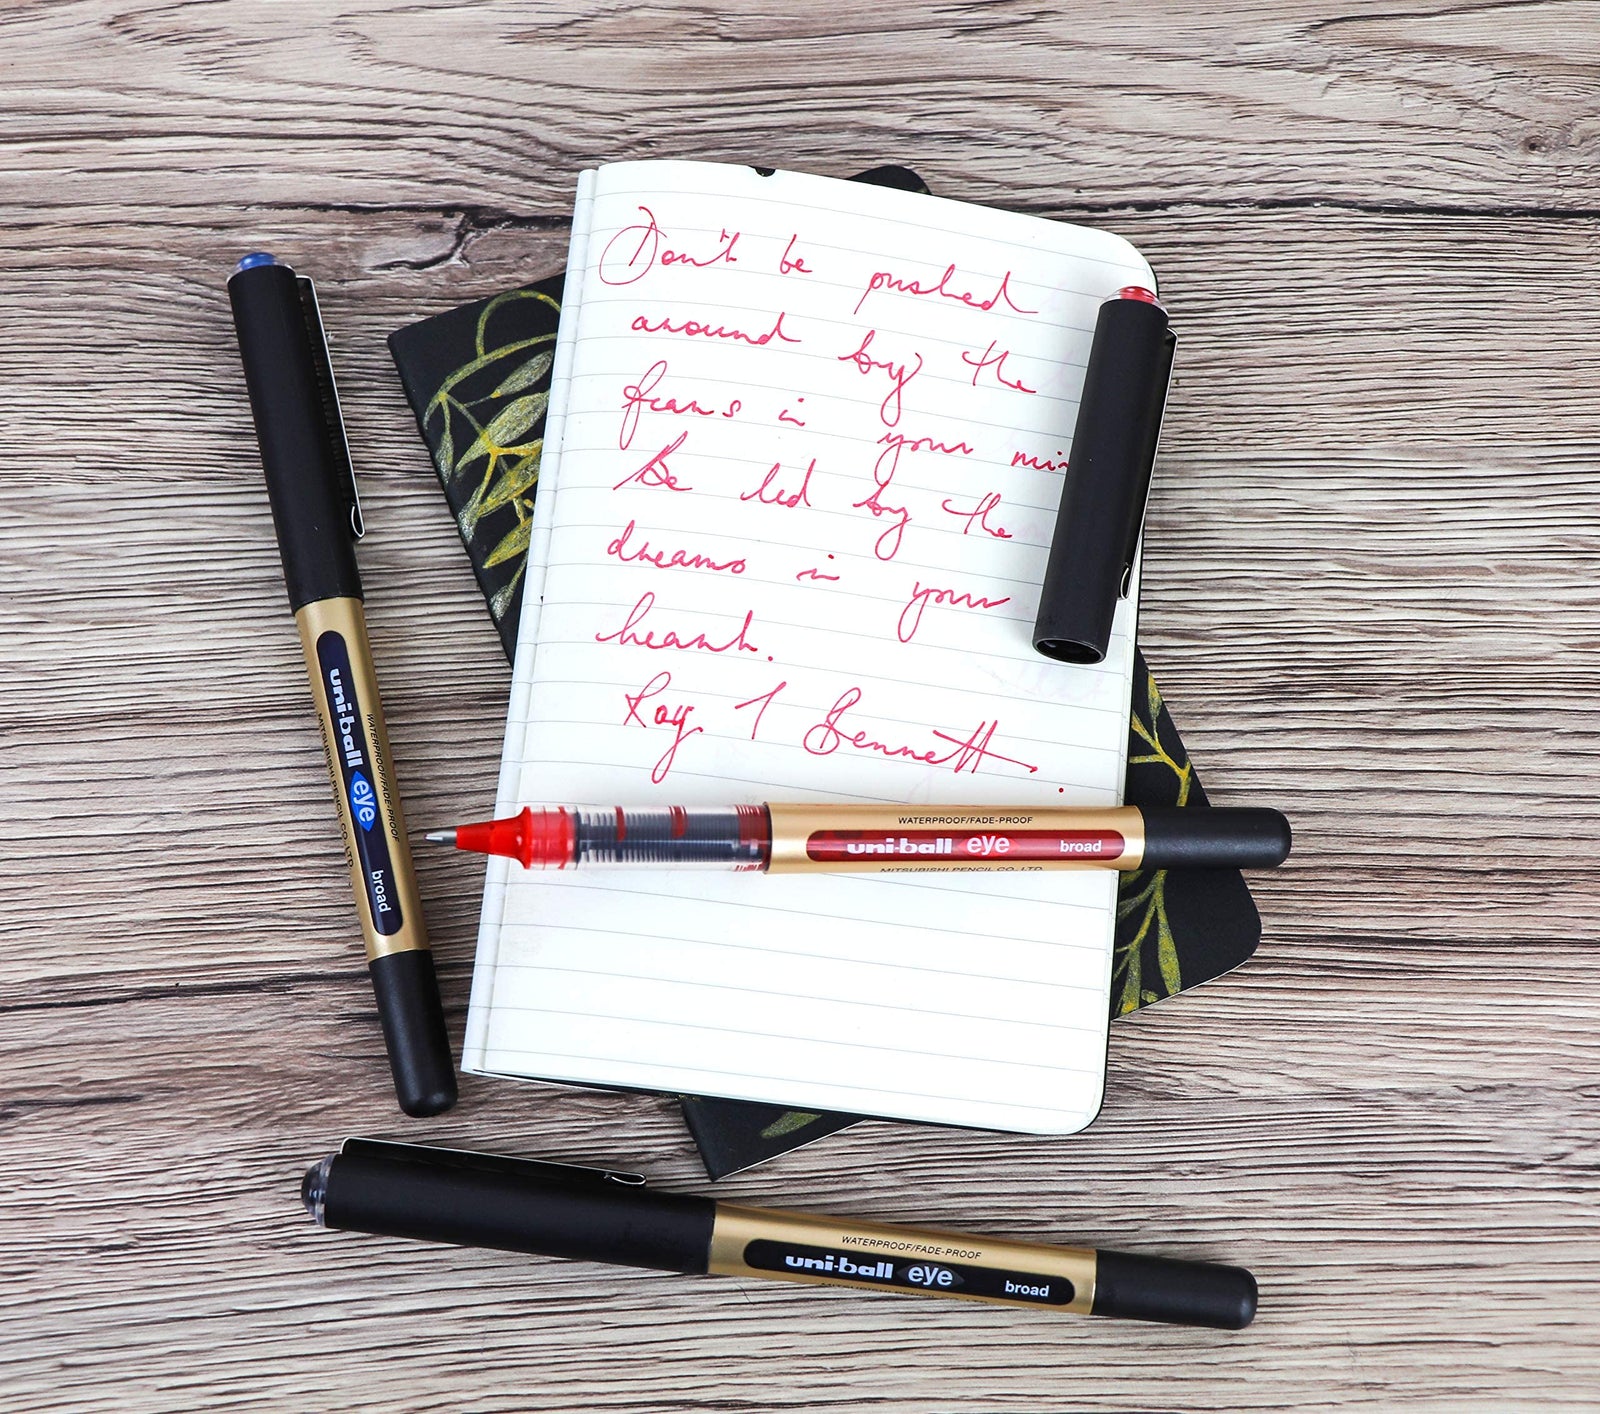 Don't be pushed
around by the
fears in your min
Be led by the
dreams in your
heart.
Roy T Bennett.
WATERPROOF/FADE-PROOF
uni-ball eye broad
MITSUBISHI PENCIL CO., LTD.
WATERPROOF/FADE-PROOF
uni-ball eye broad
MITSUBISHI PENCIL CO., LTD.
WATERPROOF/FADE-PROOF
uni-ball eye broad